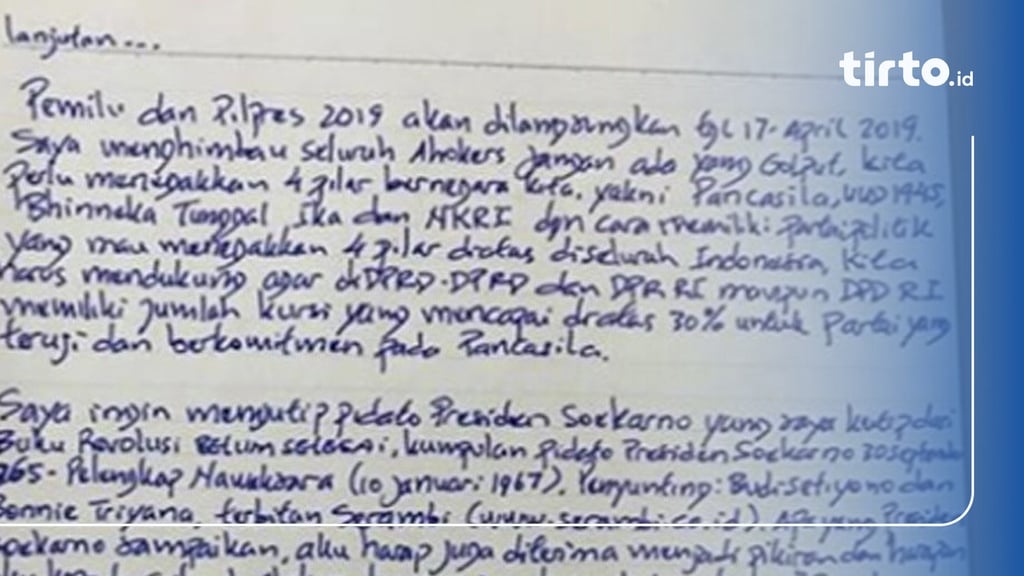 lanjutan...
tirto.id
Pemilu dan Pilpres 2019 akan dilangsungkan tgl 17-April 2019.
Saya menghimbau seluruh Ahokers jangan ada yang Golput, kita
Perlu menegakkan 4 pilar bernegara kita, yakni Pancasila, UUD 1945,
Bhinneka Tunggal Ika dan NKRI dgn cara memiliki partai politik
yang mau menegakkan 4 pilar diatas diseluruh Indonesia, kita
harus mendukung agar di DPRD-DPRD dan DPR RI maupun DPD RI
memiliki jumlah kursi yang mencapai diatas 30% untuk Partai yang
teruji dan berkomitmen pada Pancasila.
Saya ingin mengutip pidato Presiden Soekarno yang saya kutip dari
Buku Revolusi BELUM SELESAI, kumpulan pidato Presiden Soekarno 30 September
1965 - Pelengkap Nawaksara (10 Januari 1967). Penyunting: Budi Setiyono dan
Bonnie Triyana, terbitan Serambi (www.serambi.co.id). Apa yang Presiden
Soekarno sampaikan, aku harap juga diterima menjadi pikiran dan harapan